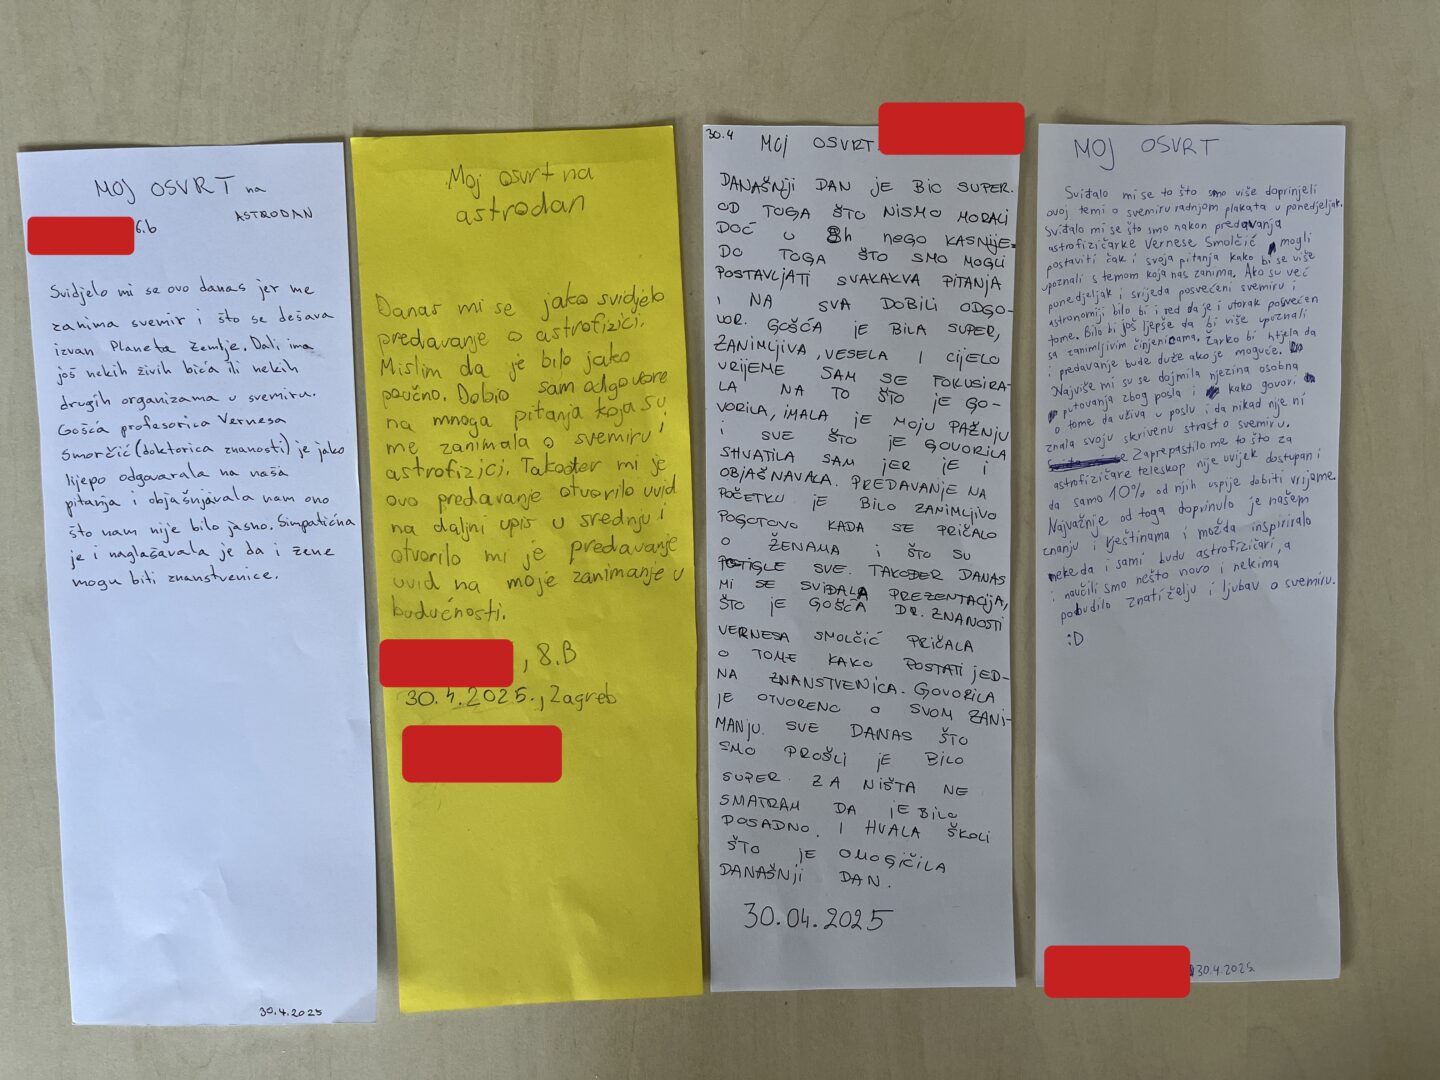 MOJ OSVRT na
ASTRODAN
6.b
Svidjelo mi se ovo danas jer me
zanima svemir i što se dešava
izvan Planeta Zemlje. Dali ima
još nekih živih bića ili nekih
drugih organizama u svemiru.
Gošća profesorica Vernesa
Smorčić (doktorica znanosti) je jako
lijepo odgovarala na naša
pitanja i objašnjavala nam ono
što nam nije bilo jasno. Simpatična
je i naglašavala je da i žene
mogu biti znanstvenice.
30.4.2025
Moj osvrt na
astrodan
Danas mi se jako svidjelo
predavanje o astrofizici.
Mislim da je bilo jako
poučno. Dobio sam odgovore
na mnoga pitanja koja su
me zanimala o svemiru i
astrofizici. Također mi je
ovo predavanje otvorilo uvid
na daljni upis u srednju i
otvorilo mi je predavanje
uvid na moje zanimanje u
budućnosti.
, 8.B
30.4.2025., Zagreb
30.4
MOJ OSVRT
DANAŠNJI DAN JE BIO SUPER.
OD TOGA ŠTO NISMO MORALI
DOĆ U 8h NEGO KASNIJE
DO TOGA ŠTO SMO MOGLI
POSTAVLJATI SVAKAKVA PITANJA
I NA SVA DOBILI ODGO-
VOR. GOŠĆA JE BILA SUPER,
ZANIMLJIVA, VESELA I CIJELO
VRIJEME SAM SE FOKUSIRA-
LA NA TO ŠTO JE GO-
VORILA, IMALA JE MOJU PAŽNJU
I SVE ŠTO JE GOVORILA
SHVATILA SAM JER JE I
OBJAŠNAVALA. PREDAVANJE NA
POČETKU JE BILO ZANIMLJIVO
POGOTOVO KADA SE PRIČALO
O ŽENAMA I ŠTO SU
POSTIGLE SVE. TAKOĐER DANAS
MI SE SVIĐALA PREZENTACIJA,
ŠTO JE GOŠĆA DR. ZNANOSTI
VERNESA SMOLČIĆ PRIČALA
O TOME KAKO POSTATI JED-
NA ZNANSTVENICA. GOVORILA
JE OTVORENO O SVOM ZANI-
MANJU. SVE DANAS ŠTO
SMO PROŠLI JE BILO
SUPER. ZA NIŠTA NE
SMATRAM DA JE BILO
DOSADNO. I HVALA ŠKOLI
ŠTO JE OMOGIČILA
DANAŠNJI DAN.
30.04.2025
MOJ OSVRT
Sviđalo mi se to što smo više doprinjeli
ovoj temi o svemiru radnjom plakata u ponedjeljak.
Sviđalo mi se što smo nakon predavanja
astrofizičarke Vernese Smolčić mogli
postaviti čak i svoja pitanja kako bi se više
upoznali s temom koja nas zanima. Ako su već
ponedjeljak i srijeda posvećeni svemiru i
astronomiji bilo bi i red da je i utorak posvećen
tome. Bilo bi još ljepše da bi više upoznali
sa zanimljivim činjenicama. Žarko bi htjela da
i predavanje bude duže ako je moguće.
Najviše mi su se dojmila njezina osobna
putovanja zbog posla i kako govori
o tome da uživa u poslu i da nikad nije ni
znala svoju skrivenu strast o svemiru.
Zaprepastilo me to što za
astrofizičare teleskop nije uvijek dostupan i
da samo 10% od njih uspije dobiti vrijeme.
Najvažnije od toga doprinulo je našem
znanju i vještinama i možda inspiriralo
neke da i sami budu astrofizičari, a
i naučili smo nešto novo i nekima
pobudilo znatiželju i ljubav o svemiru.
:D
30.4.2025.